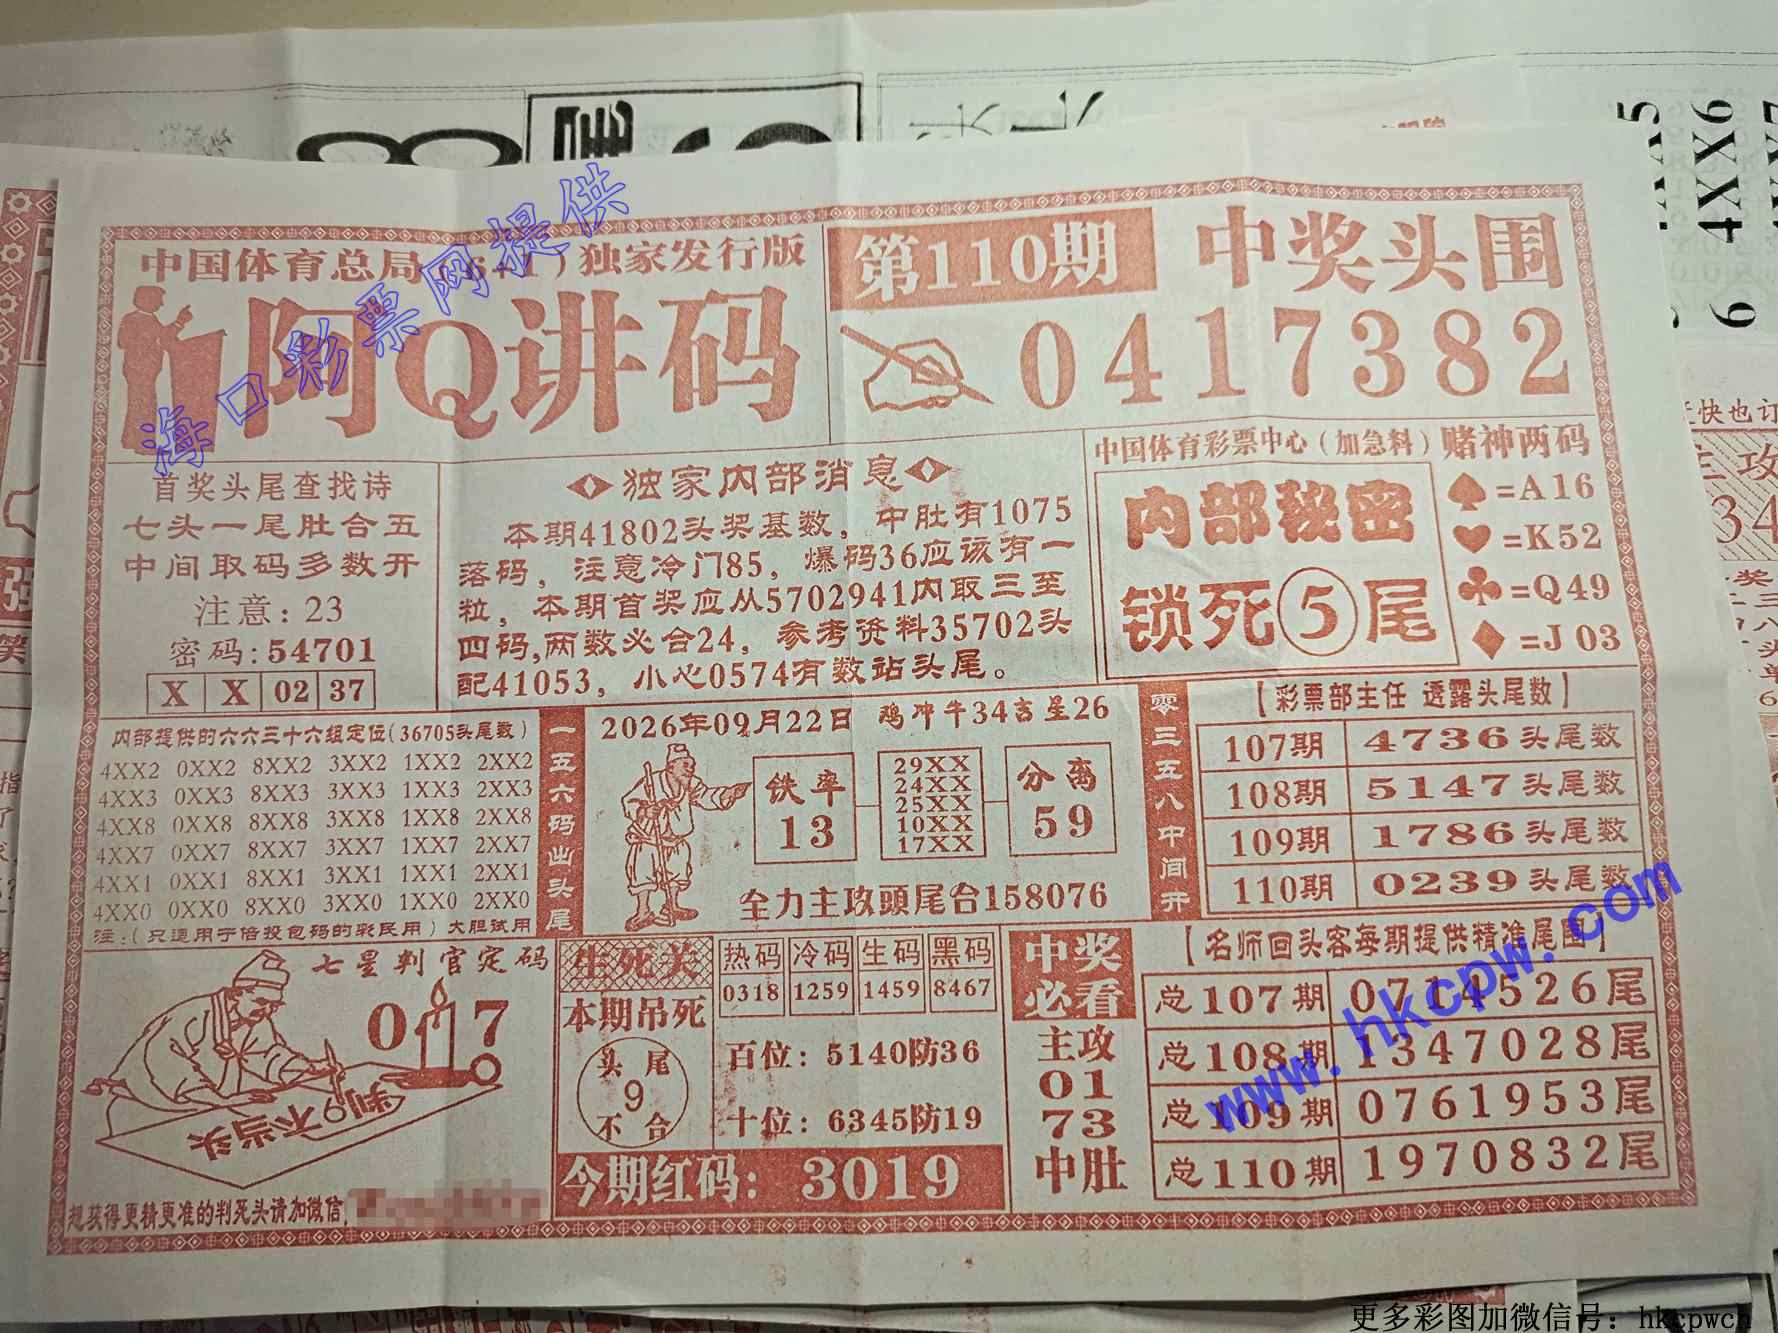 中国体育总局
独家发行版
阿Q讲码
第110期
中奖头围
0417382
首奖头尾查找诗
七头一尾肚合五
中间取码多数开
注意:23
密码:54701
X X 02 37
独家内部消息
本期41802头奖基数,中肚有1075
落码,注意冷门85,爆码36应该有一
粒,本期首奖应从5702941内取三至
四码,两数必合24,参考资料35702头
配41053,小心0574有数站头尾。
中国体育彩票中心(加急料)赌神两码
内部秘密
锁死5尾
♠=A16
♥=K52
♣=Q49
♦=J03
内部提供的六六三十六组定位(36705头尾数)
4XX2 0XX2 8XX2 3XX2 1XX2 2XX2
4XX3 0XX3 8XX3 3XX3 1XX3 2XX3
4XX8 0XX8 8XX8 3XX8 1XX8 2XX8
4XX7 0XX7 8XX7 3XX7 1XX7 2XX7
4XX1 0XX1 8XX1 3XX1 1XX1 2XX1
4XX0 0XX0 8XX0 3XX0 1XX0 2XX0
注:(只适用于倍投包码的彩民用)大胆试用
一五六码出头尾
2026年09月22日 鸡冲牛34吉星26
铁率
13
29XX
24XX
25XX
10XX
17XX
分离
59
全力主攻頭尾台158076
零三五八中间开
【彩票部主任 透露头尾数】
107期 4736头尾数
108期 5147头尾数
109期 1786头尾数
110期 0239头尾数
七星判官定码
017
判9不当头
想获得更精更准的判死头请加微信
生死关
本期吊死
头尾
9
不合
热码 冷码 生码 黑码
0318 1259 1459 8467
百位:5140防36
十位:6345防19
今期红码:3019
中奖
必看
主攻
01
73
中肚
【名师回头客每期提供精准尾围】
总107期 0714526尾
总108期 1347028尾
总109期 0761953尾
总110期 1970832尾
海口彩票网提供
www.hkcpw.com
更多彩图加微信号:hkcpwch
4XX6
6
快也订